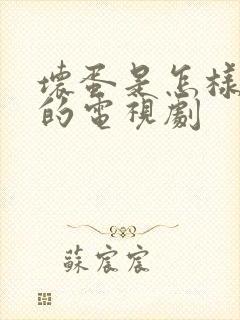 壞蛋是怎樣
的電視劇
蘇宸宸